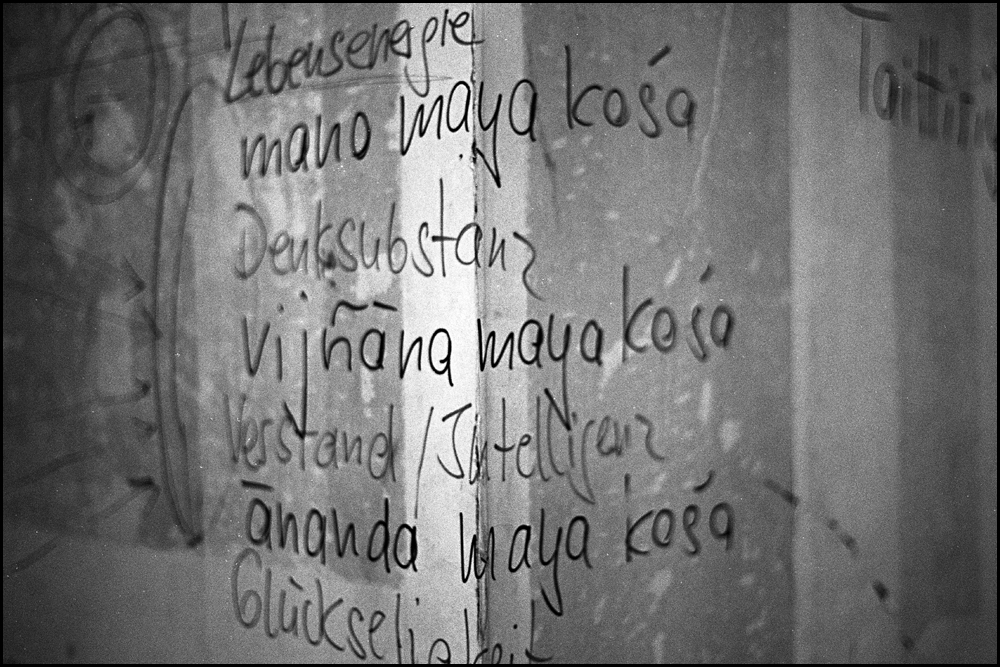 Lebensenergie
mano maya kośa
Denksubstanz
vijñāna maya kośa
Verstand / Intelligenz
ānanda maya kośa
Glückseligkeit